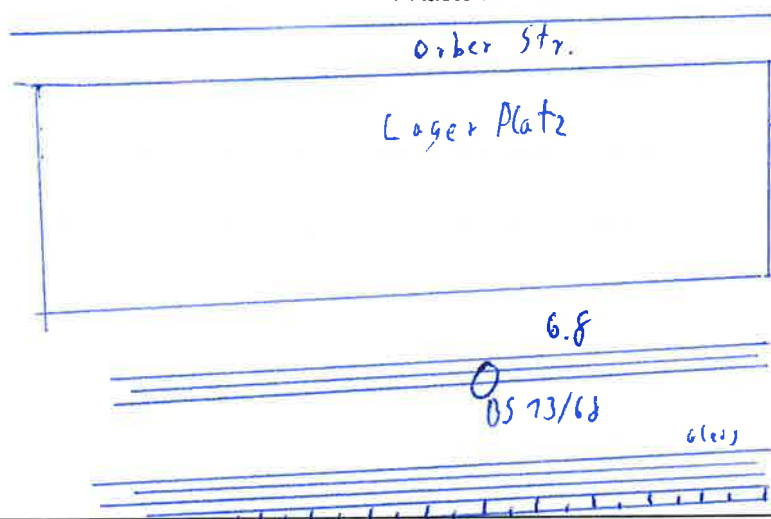 Orber Str.
Lager Platz
6.8
BS 13/68
Gleis